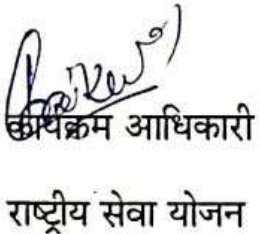 कार्यक्रम आधिकारी
राष्ट्रीय सेवा योजन